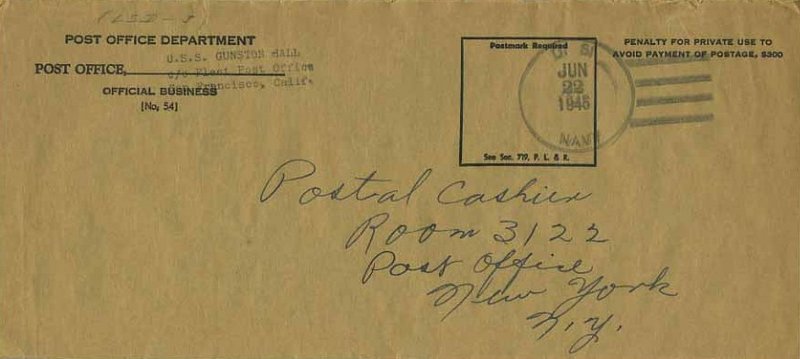 POST OFFICE DEPARTMENT
U.S.S. GUNSTON HALL
POST OFFICE,
c/o Fleet Post Office
San Francisco, Calif.
OFFICIAL BUSINESS
[No, 54]
Postmark Required
See Sec. 719, P. L. & R.
U. S.
JUN
22
1945
NAVY
PENALTY FOR PRIVATE USE TO
AVOID PAYMENT OF POSTAGE, $300
Postal Cashier
Room 3122
Post Office
New York
N.Y.